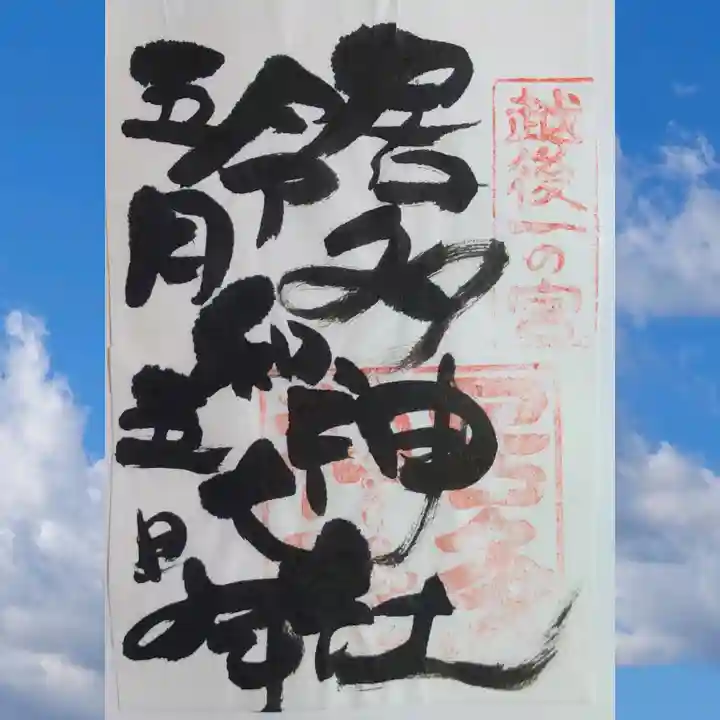 越後一の宮
居多神社
令和七年
五月五日